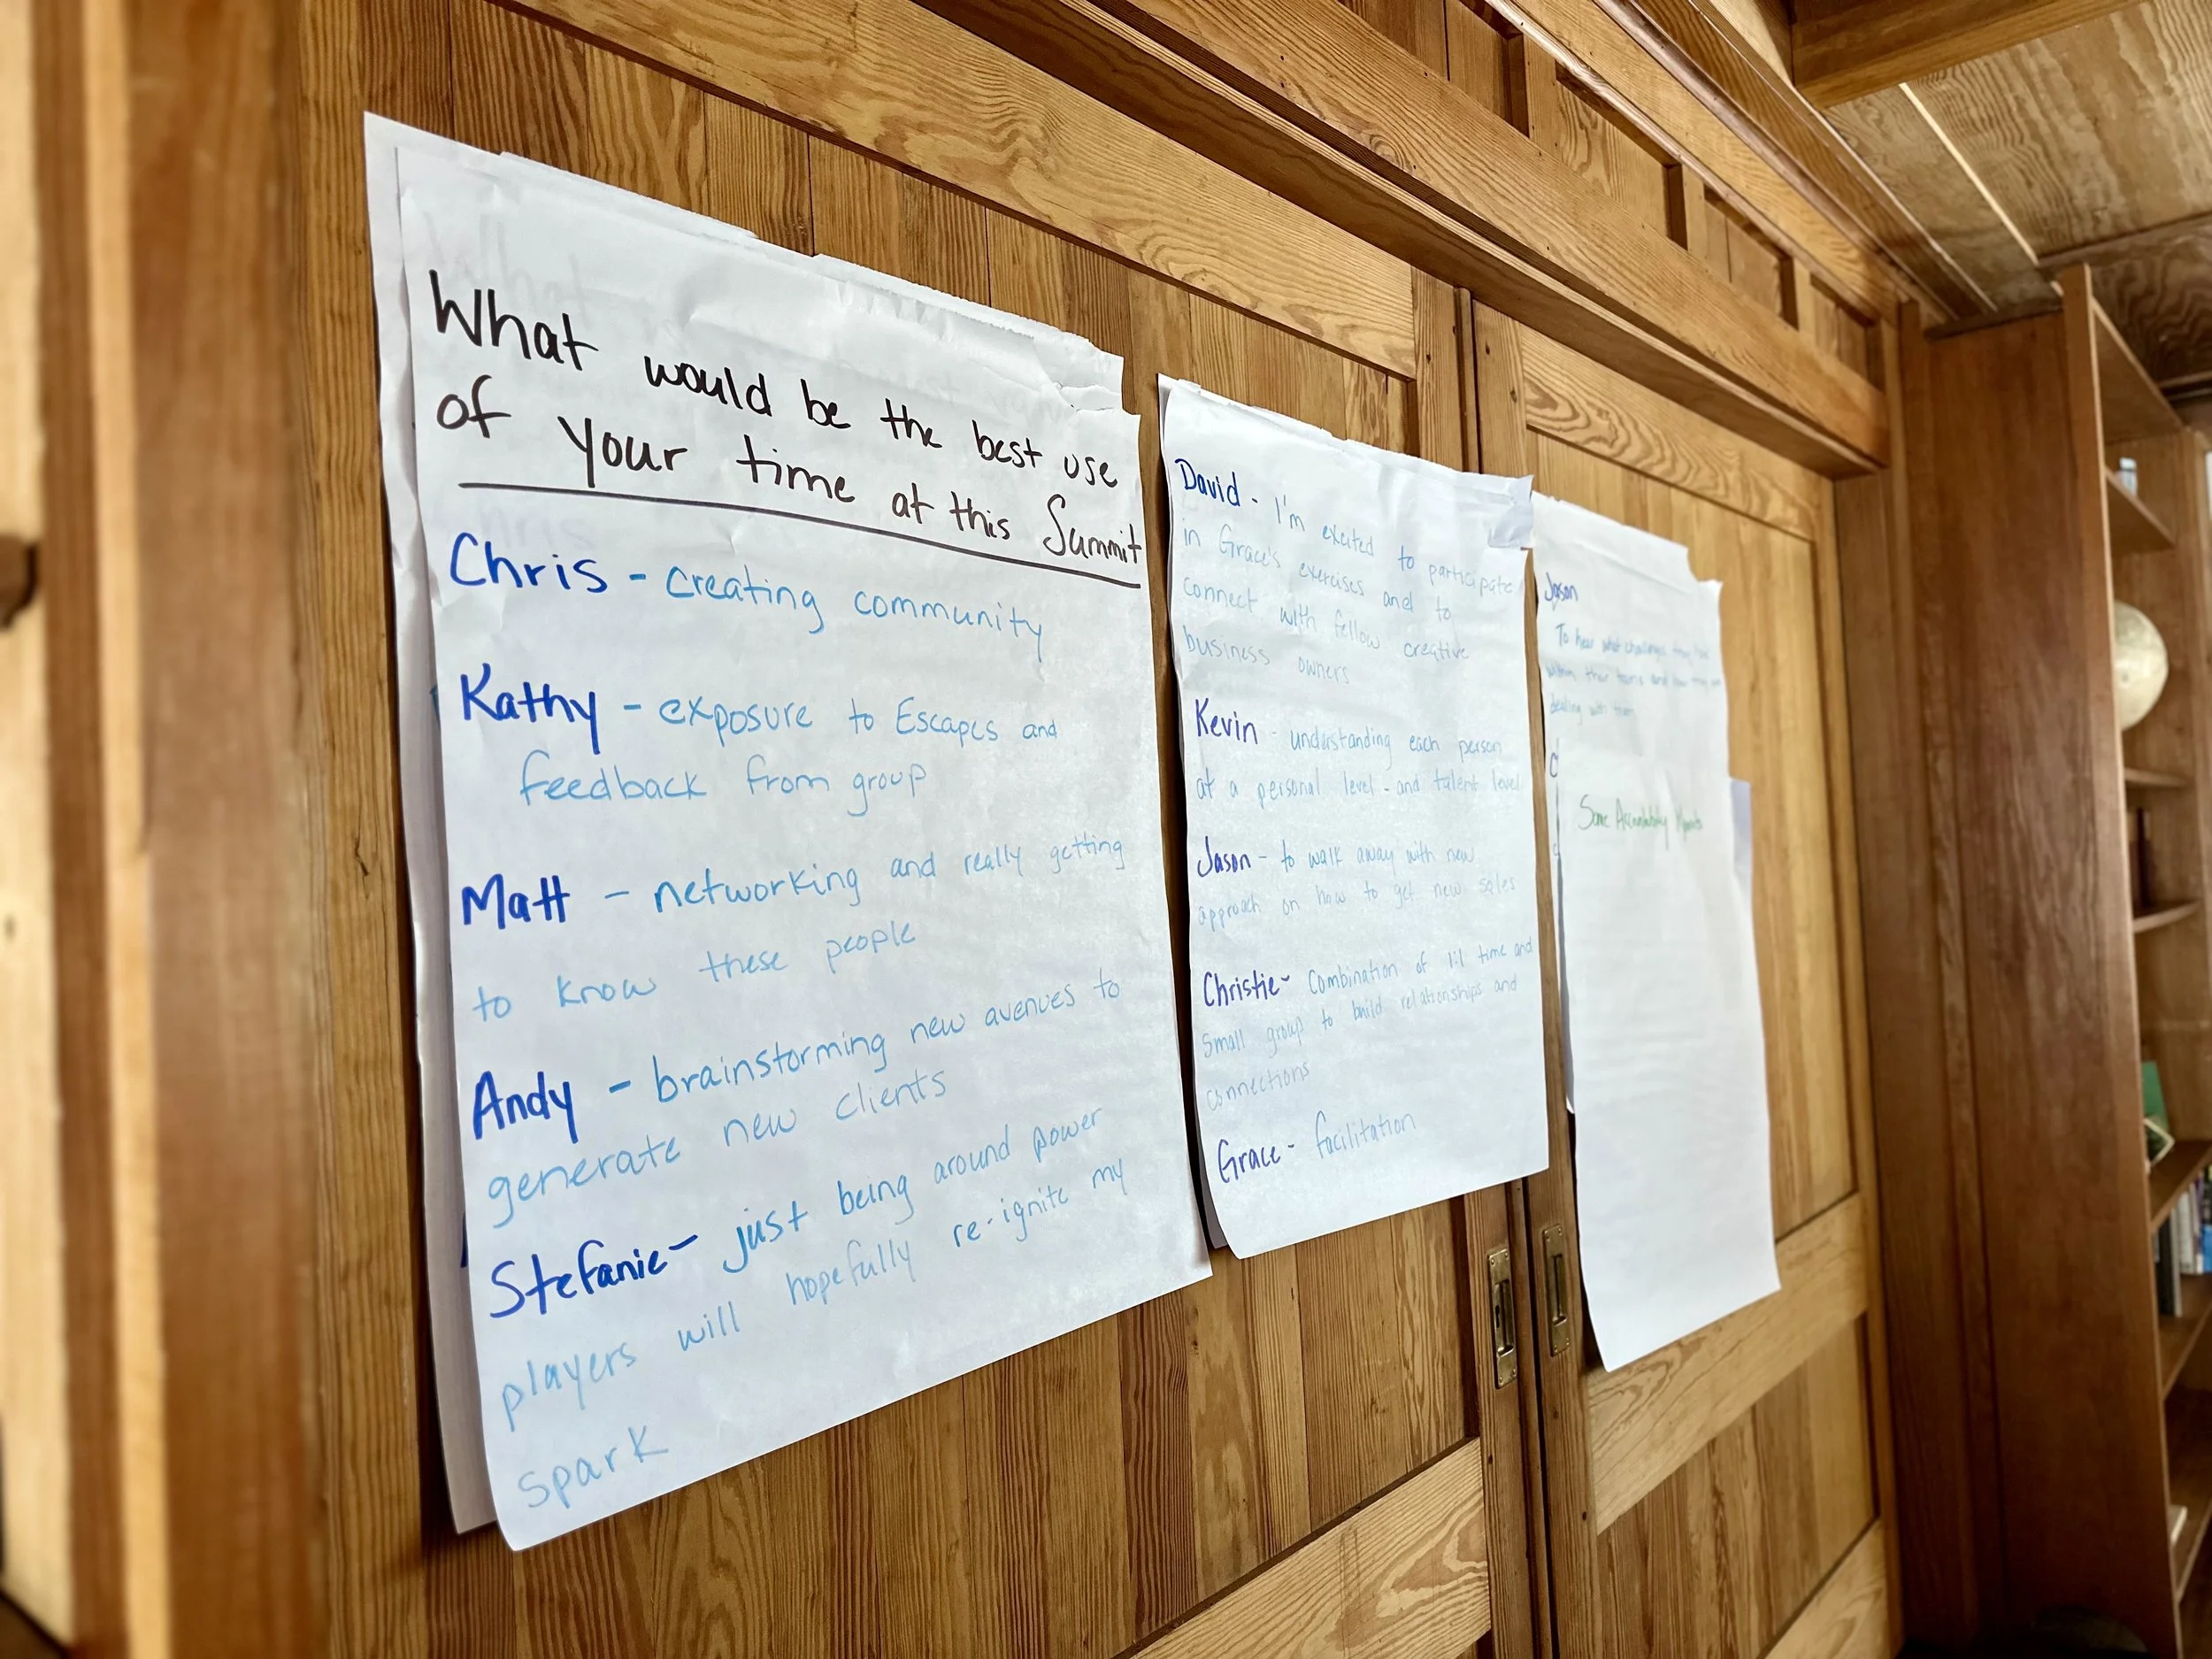 What would be the best use
of your time at this Summit
Chris - creating community
Kathy - exposure to Escapes and
feedback from group
Matt - networking and really getting
to know these people
Andy - brainstorming new avenues to
generate new clients
Stefanie - just being around power
players will hopefully re-ignite my
spark
David - I'm excited to participate
in Grace's exercises and to
connect with fellow creative
business owners
Kevin - understanding each person
at a personal level - and talent level
Jason - to walk away with new
approach on how to get new sales
Christie - Combination of 1:1 time and
small group to build relationships and
connections
Grace - facilitation
Jason
To hear what challenges they have
within their teams and how they are
dealing with them
Some Accountability